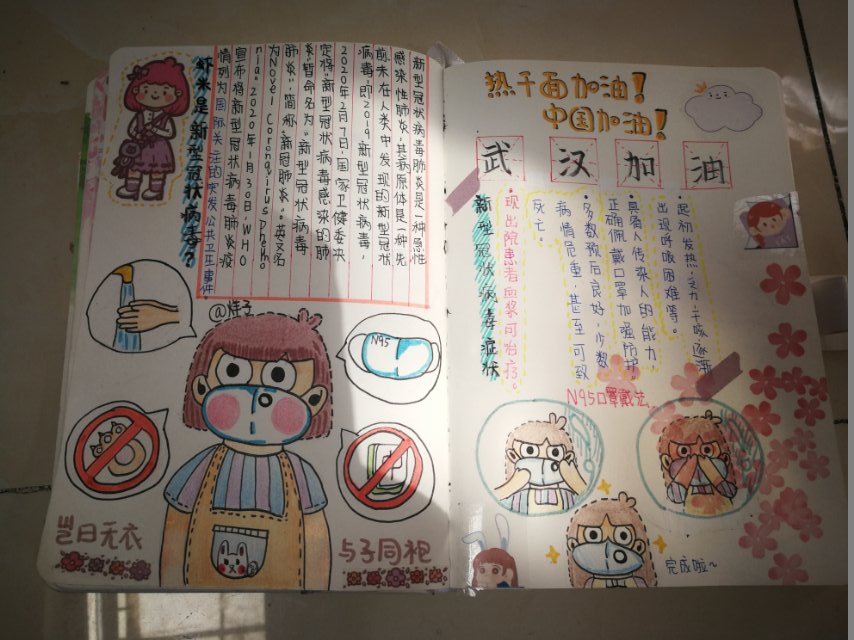 虾米是新型冠状病毒？
新型冠状病毒肺炎是一种急性
感染性肺炎，其病原体是一种先
前未在人类中发现的新型冠状
病毒，即2019新型冠状病毒，
2020年2月7日，国家卫健委决
定将“新型冠状病毒感染的肺
炎”暂命名为“新型冠状病毒
肺炎”，简称“新冠肺炎”，英文名
为Novel Coronavirus Pneumo
nia。2020年1月30日，WHO
宣布将新型冠状病毒肺炎疫
情列为国际关注的突发公共卫生事件
N95
岂曰无衣
与子同袍
热干面加油！
中国加油！
武汉加油
新型冠状病毒症状
•起初发热，乏力，干咳，逐渐
出现呼吸困难等。
•具备人传染人的能力，
正确佩戴口罩加强防护。
•多数预后良好，少数
病情危重，甚至可致
死亡。
•现出院患者血浆可治疗。
N95口罩戴法
完成啦~